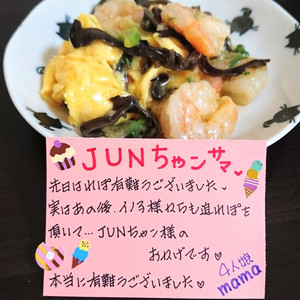 JUNちゃンサマ
先日はれぽ有難うございました
実はあの後、イノ子様からも追れぽを
頂いて…JUNちゃン様の
おかげです
本当に有難うございました
4人娘
mama